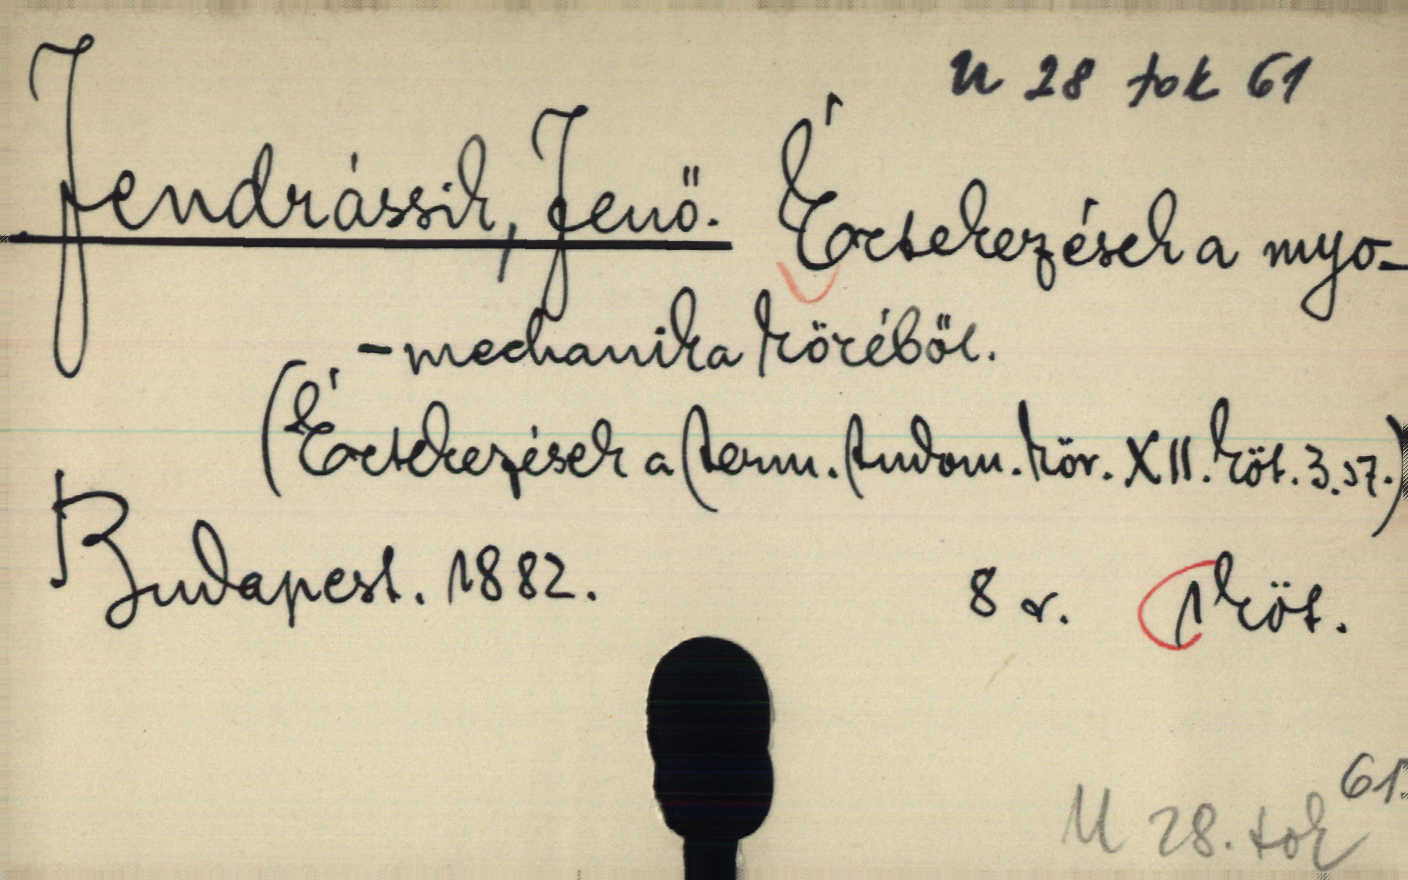 U 28 tok 61
Jendrássik, Jenő. Értekezések a myo-
-mechanika köréből.
(Értekezések a term. tudom. kör. XII. köt. 3. sz.)
Budapest. 1882. 8 r. 1 köt.
U 28. tok 61.